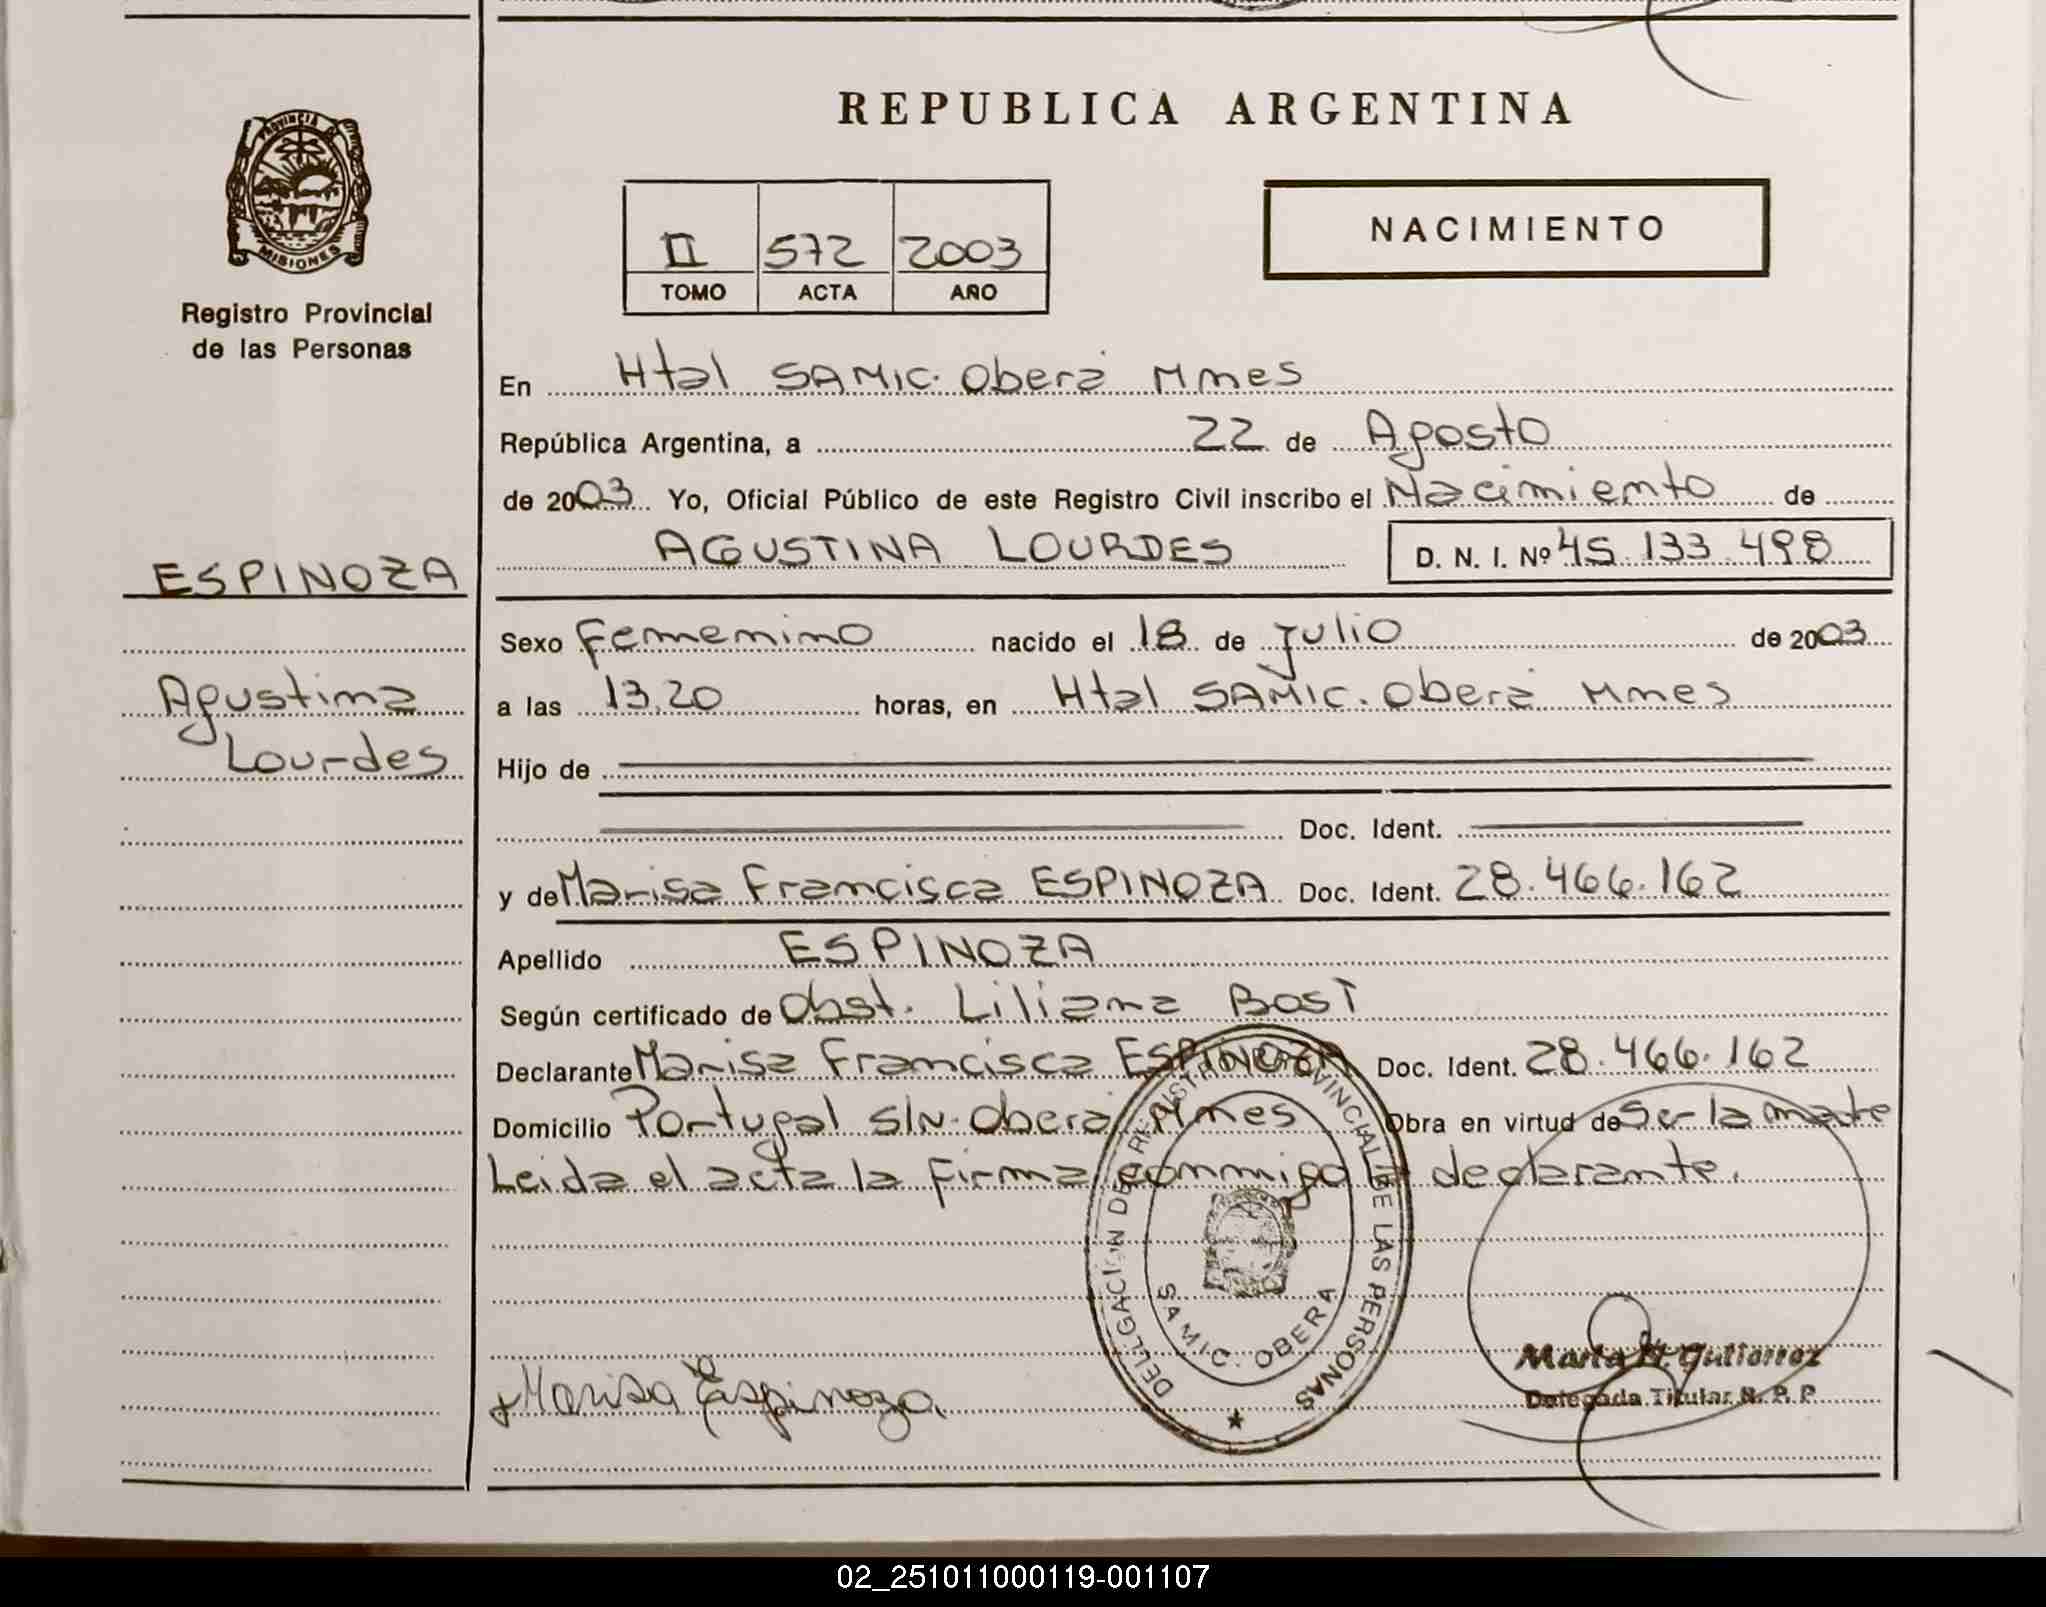 REPUBLICA ARGENTINA
PROVINCIA DE
MISIONES
Registro Provincial
de las Personas
II 572 2003
TOMO ACTA AÑO
NACIMIENTO
En Htal SAMIC. Oberá Mnes
República Argentina, a 22 de Agosto
de 2003 Yo, Oficial Público de este Registro Civil inscribo el Nacimiento de
AGUSTINA LOURDES D. N. I. Nº 45.133.498
ESPINOZA
Agustina
Lourdes
Sexo femenino nacido el 18 de julio de 2003
a las 13.20 horas, en Htal SAMIC. Oberá Mnes
Hijo de
Doc. Ident.
y de Marisa Francisca ESPINOZA Doc. Ident. 28.466.162
Apellido ESPINOZA
Según certificado de Obst. Liliana Bost
Declarante Marisa Francisca ESPINOZA Doc. Ident. 28.466.162
Domicilio Portugal s/n. Oberá Mnes Obra en virtud de Ser la madre
Leida el acta la firma conmigo la declarante.
DELEGACION DEL REGISTRO PROVINCIAL DE LAS PERSONAS
SAMIC. OBERA
Marisa Espinoza.
Marta H. Gutierrez
Delegada Titular R. P. P.
02_251011000119-001107